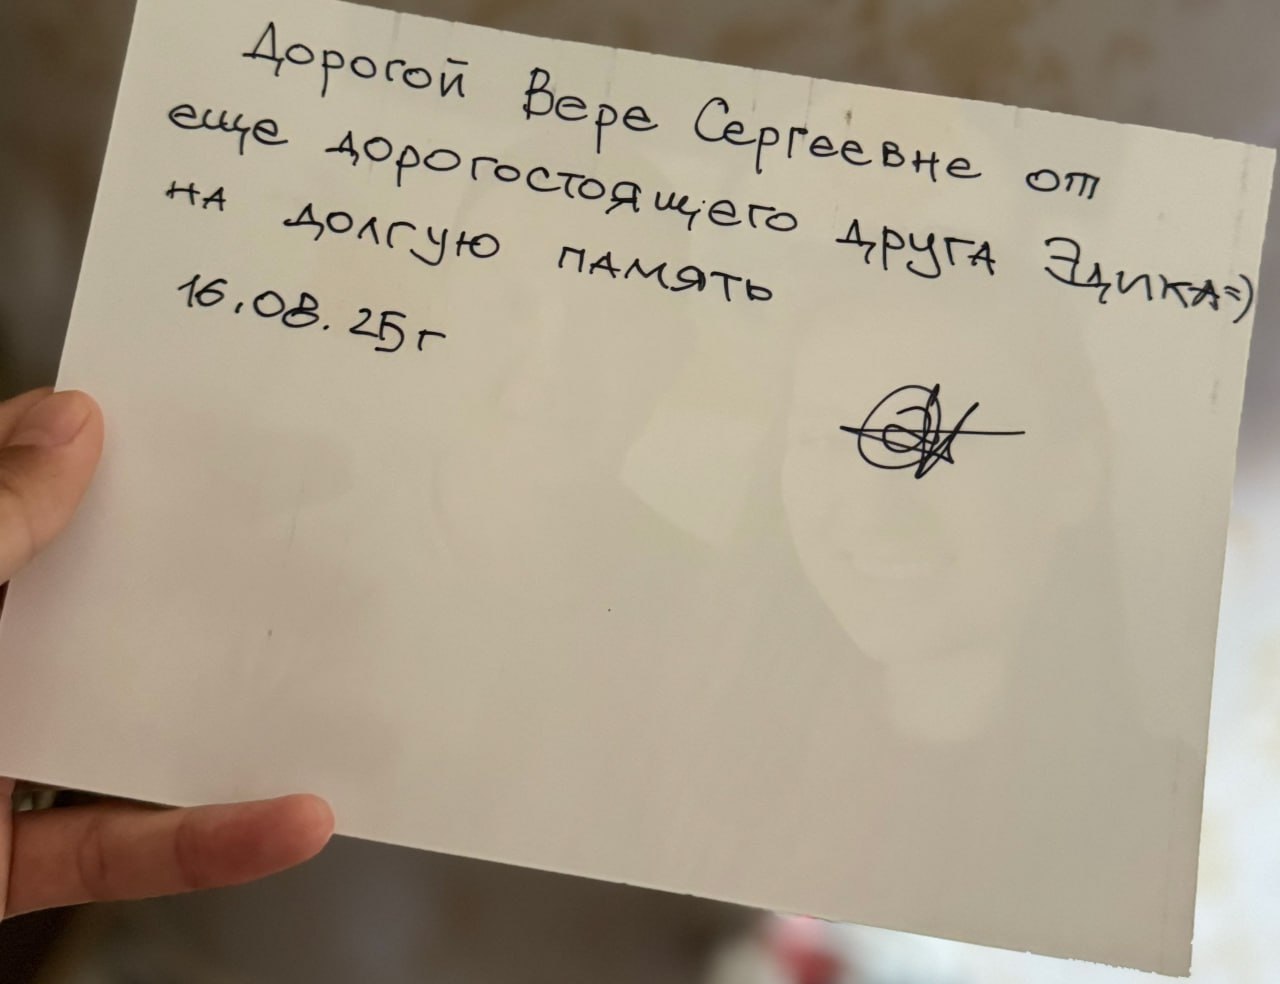 Дорогой Вере Сергеевне от
еще дорогостоящего друга Эдика=)
на долгую память
16.08.25г